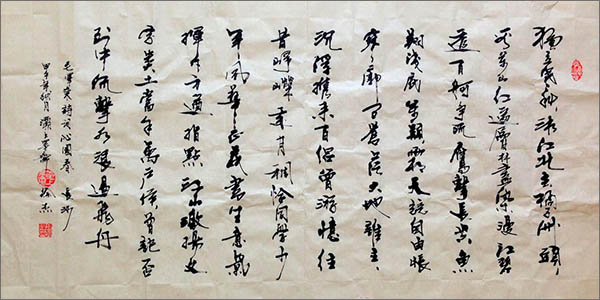 獨立寒秋湘江北去橘子洲頭
看萬山红遍層林盡染漫江碧
透百舸争流鷹擊長空魚
翔淺底萬類霜天競自由悵
寥廓问蒼茫大地誰主
沉浮攜来百侣曾游憶往
昔崢嶸歲月稠恰同學少
年風華正茂書生意氣
揮斥方遒指點江山激揚文
字糞土當年萬户侯曾記否
到中流擊水浪遏飛舟
毛澤東詩詞沁園春 長沙
甲午年秋月